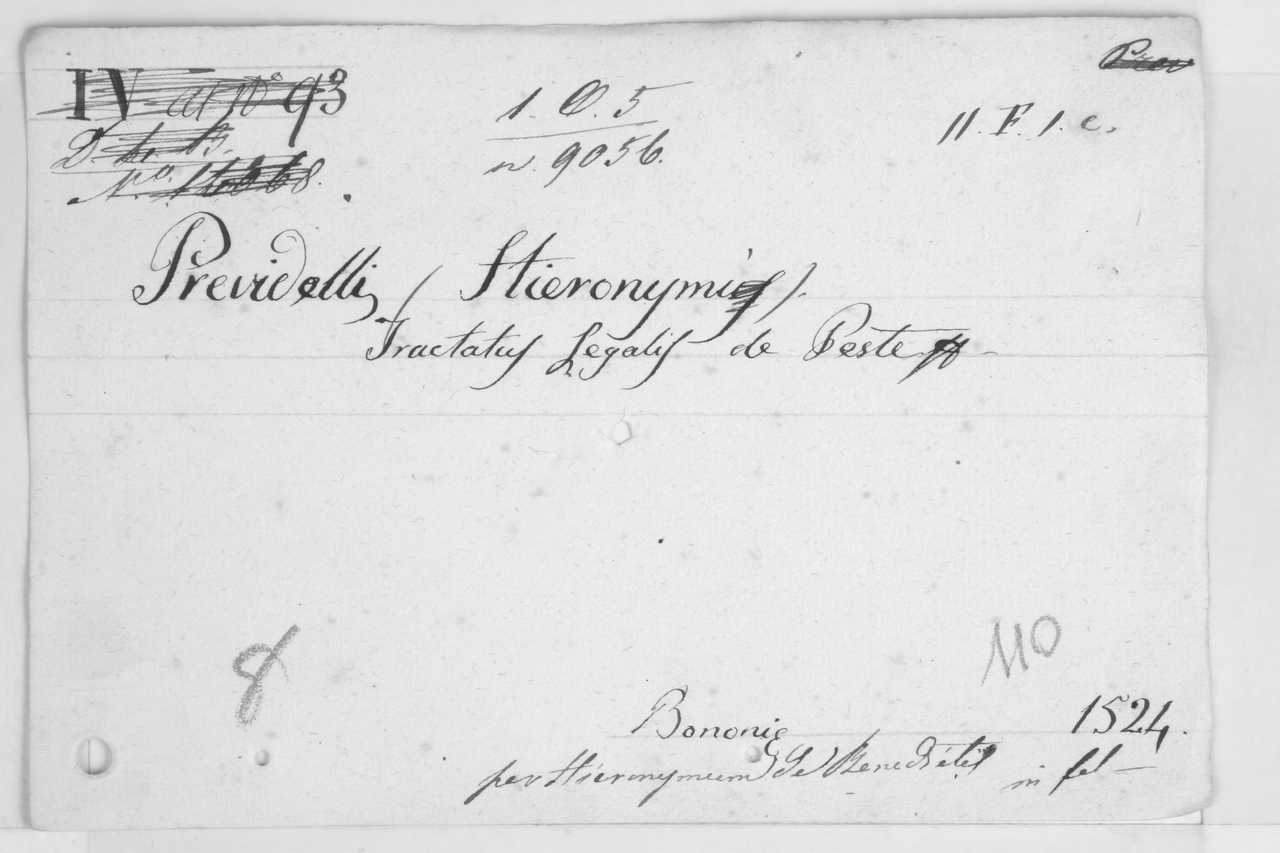 IV
93
1. Q. 5
n. 9056.
11. F. 1. c.
Previdelli, (Hieronymi).
Tractatus Legalis de Peste
8
110
Bononię 1524.
per Hieronymum de Benedictis in fol